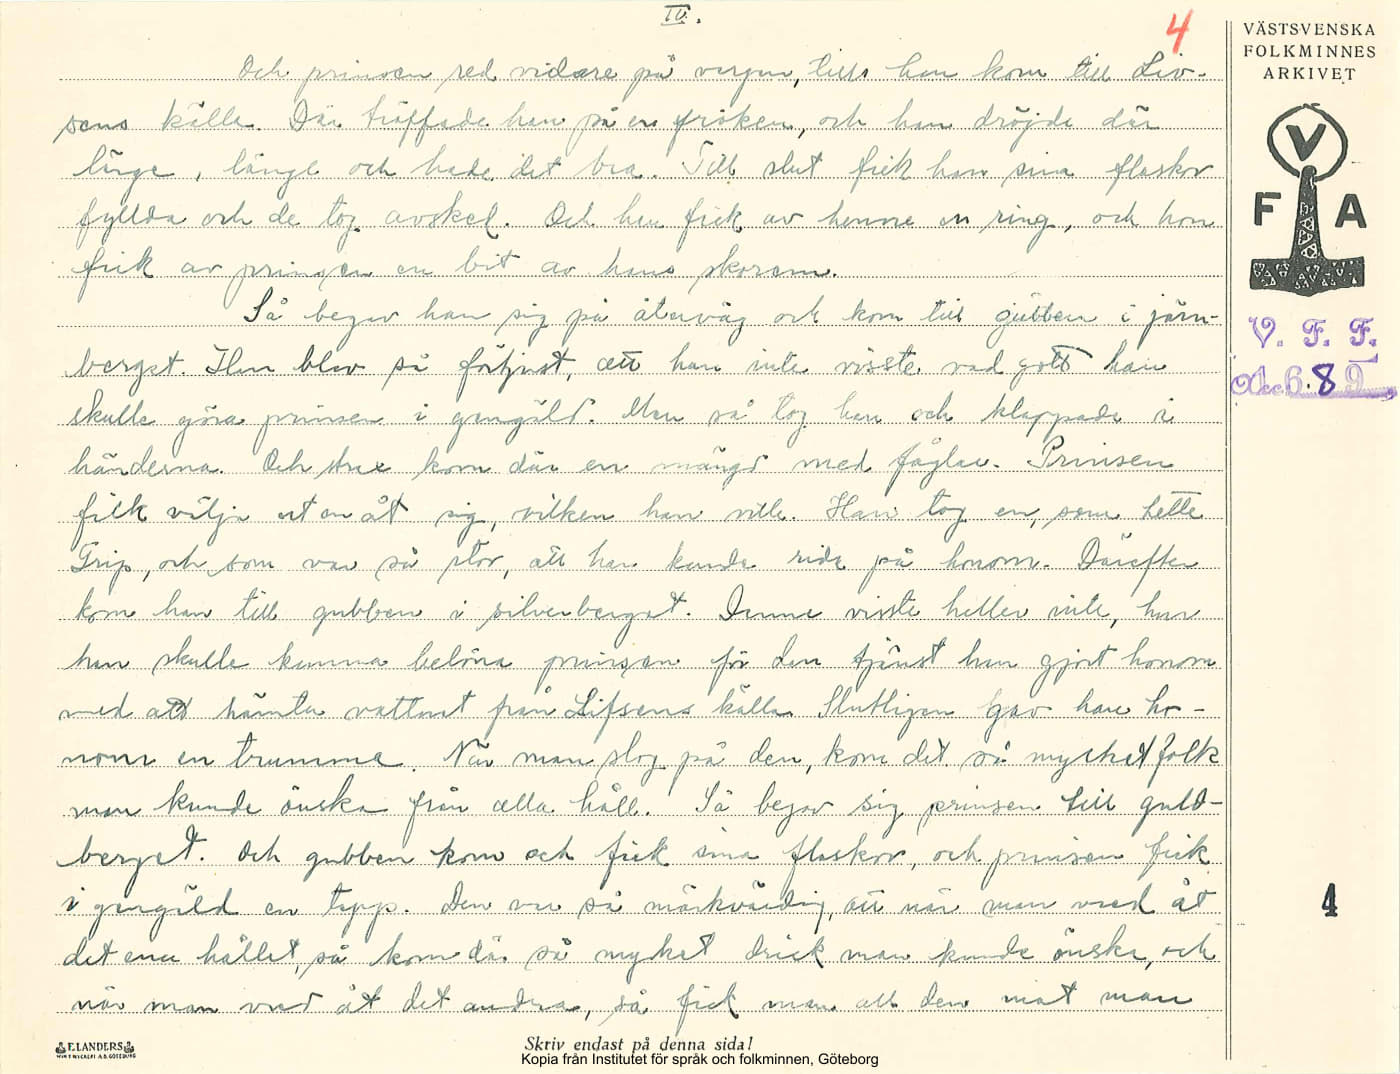 IV.
4
VÄSTSVENSKA
FOLKMINNES
ARKIVET
Och prinsen red vidare på vargen, tills han kom till Liv-
sens källa. Där träffade han på en fröken, och han dröjde där
länge, länge och hade det bra. Till slut fick han sina flaskor
fyllda och de tog avsked. Och han fick av henne en ring, och hon
fick av prinsen en bit av hans skorem.
Så begav han sig på återväg och kom till gubben i järn-
berget. Han blev så förtjust, att han inte visste vad gott han
skulle göra prinsen i gengäld. Men så tog han och klappade i
händerna. Och strax kom där en mängd med fåglar. Prinsen
fick välja ut en åt sig, vilken han ville. Han tog en, som hette
Grip, och som var så stor, att han kunde rida på honom. Därefter
kom han till gubben i silverberget. Denne visste heller inte, hur
han skulle kunna belöna prinsen för den tjänst han gjort honom
med att hämta vattnet från Lifsens källa. Slutligen gav han ho-
nom en trumma. När man slog på den, kom det så mycket folk
man kunde önska från alla håll. Så begav sig prinsen till guld-
berget. Och gubben kom och fick sina flaskor, och prinsen fick
i gengäld en tapp. Den var så märkvärdig, att när man vred åt
det ena hållet, så kom där så mycket drick man kunde önska, och
när man vred åt det andra, så fick man all den mat man
V
F A
V. F. F.
Acc 6.89
4
F. LANDERS
Skriv endast på denna sida!
Kopia från Institutet för språk och folkminnen, Göteborg